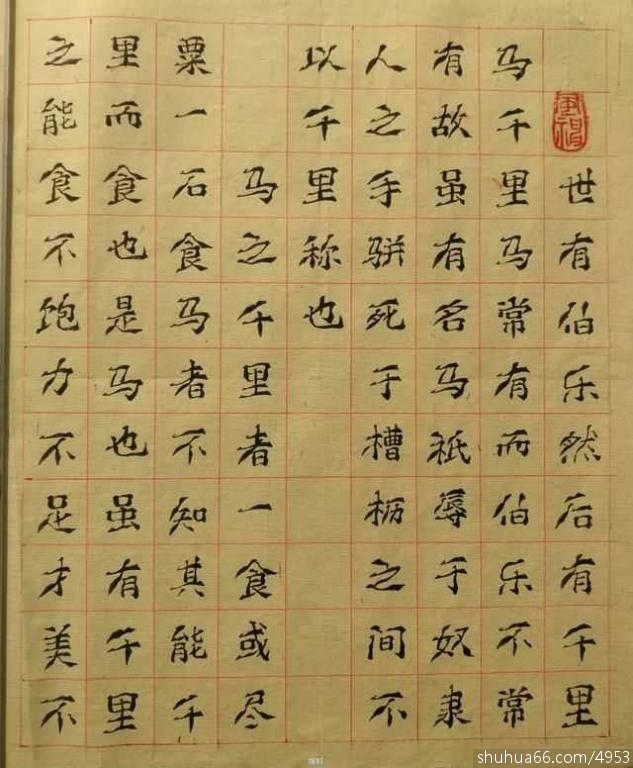 世有伯乐然后有千里
马千里马常有而伯乐不常
有故虽有名马祇辱于奴隶
人之手骈死于槽枥之间不
以千里称也
马之千里者一食或尽
粟一石食马者不知其能千
里而食也是马也虽有千里
之能食不饱力不足才美不
shuhua66.com/4953